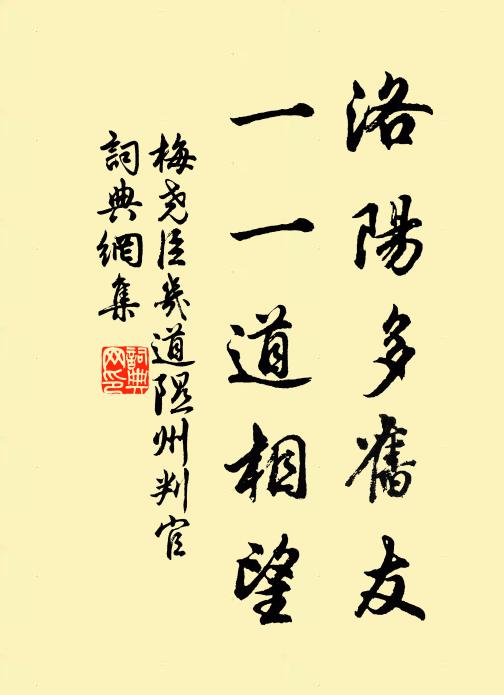 洛陽多舊友
一一道相望
梅堯臣義道隰州判官
詞典網集
詞典網印